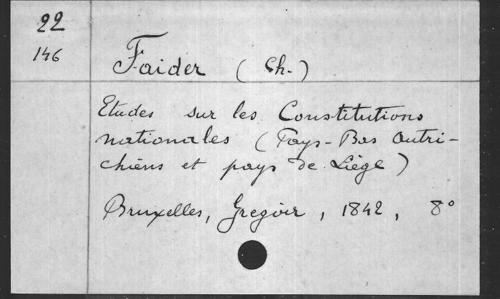 22
146
Faider (Ch.)
Etudes sur les Constitutions
nationales (Pays-Bas Autri-
chiens et pays de Liége)
Bruxelles, Gregoir, 1842, 8°